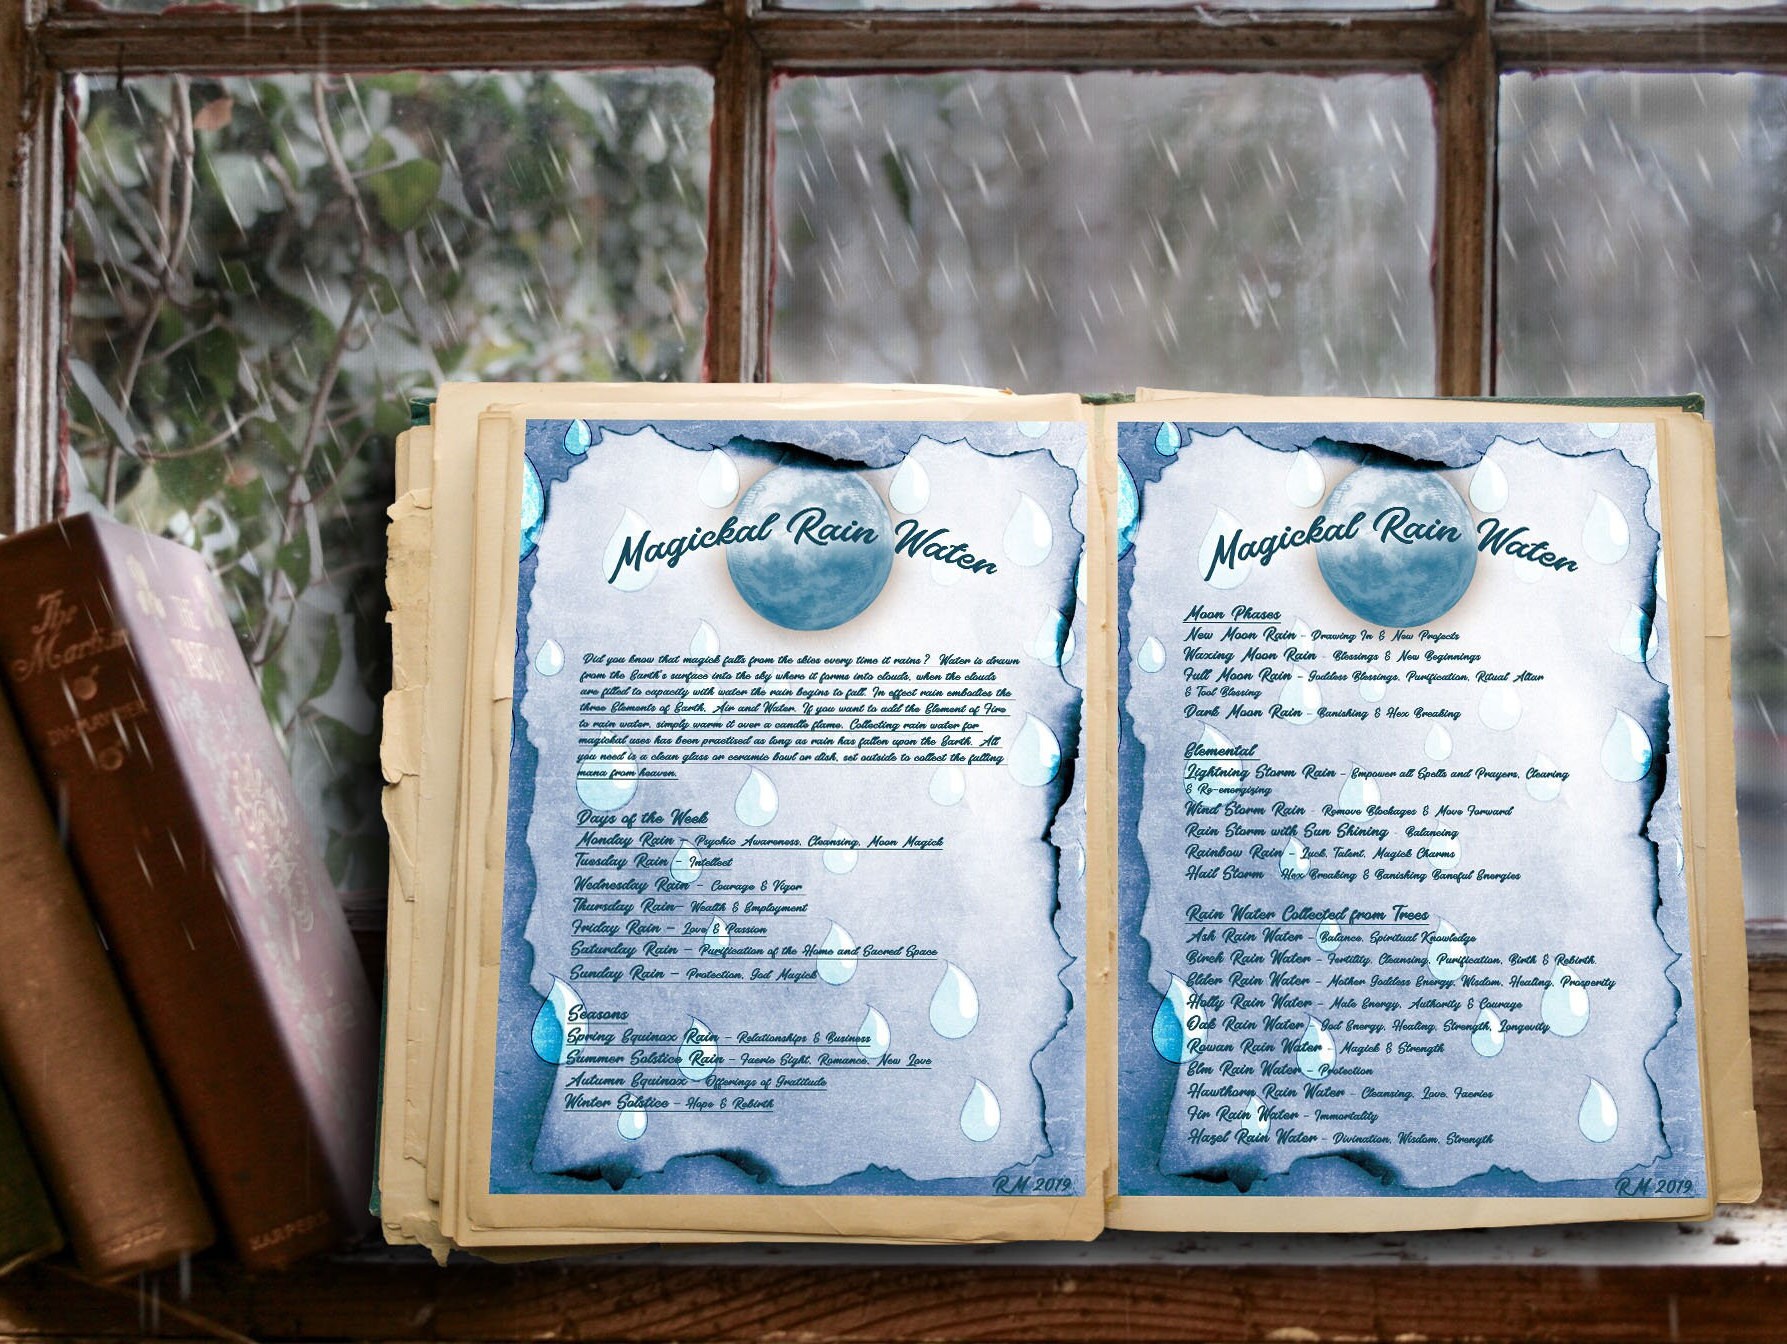 The
Martian
DU MAURIER
HARPERS
Magickal Rain Water
Did you know that magick falls from the skies every time it rains? Water is drawn
from the Earth's surface into the sky where it forms into clouds, when the clouds
are filled to capacity with water the rain begins to fall. In effect rain embodies the
three Elements of Earth, Air and Water. If you want to add the Element of Fire
to rain water, simply warm it over a candle flame. Collecting rain water for
magickal uses has been practised as long as rain has fallen upon the Earth. All
you need is a clean glass or ceramic bowl or dish, set outside to collect the falling
mana from heaven.
Days of the Week
Monday Rain - Psychic Awareness, Cleansing, Moon Magick
Tuesday Rain - Intellect
Wednesday Rain - Courage & Vigor
Thursday Rain- Wealth & Employment
Friday Rain - Love & Passion
Saturday Rain - Purification of the Home and Sacred Space
Sunday Rain - Protection, God Magick
Seasons
Spring Equinox Rain - Relationships & Business
Summer Solstice Rain - Faerie Sight, Romance, New Love
Autumn Equinox - Offerings of Gratitude
Winter Solstice - Hope & Rebirth
RM 2019
Magickal Rain Water
Moon Phases
New Moon Rain - Drawing In & New Projects
Waxing Moon Rain - Blessings & New Beginnings
Full Moon Rain - Goddess Blessings, Purification, Ritual Altar
& Tool Blessing
Dark Moon Rain - Banishing & Hex Breaking
Elemental
Lightning Storm Rain - Empower all Spells and Prayers, Clearing
& Re-energising
Wind Storm Rain - Remove Blockages & Move Forward
Rain Storm with Sun Shining - Balancing
Rainbow Rain - Luck, Talent, Magick Charms
Hail Storm - Hex Breaking & Banishing Baneful Energies
Rain Water Collected from Trees
Ash Rain Water - Balance, Spiritual Knowledge
Birch Rain Water - Fertility, Cleansing, Purification, Birth & Rebirth.
Elder Rain Water - Mother Goddess Energy, Wisdom, Healing, Prosperity
Holly Rain Water - Male Energy, Authority & Courage
Oak Rain Water - God Energy, Healing, Strength, Longevity
Rowan Rain Water - Magick & Strength
Elm Rain Water - Protection
Hawthorn Rain Water - Cleansing, Love, Faeries
Fir Rain Water - Immortality
Hazel Rain Water - Divination, Wisdom, Strength
RM 2019